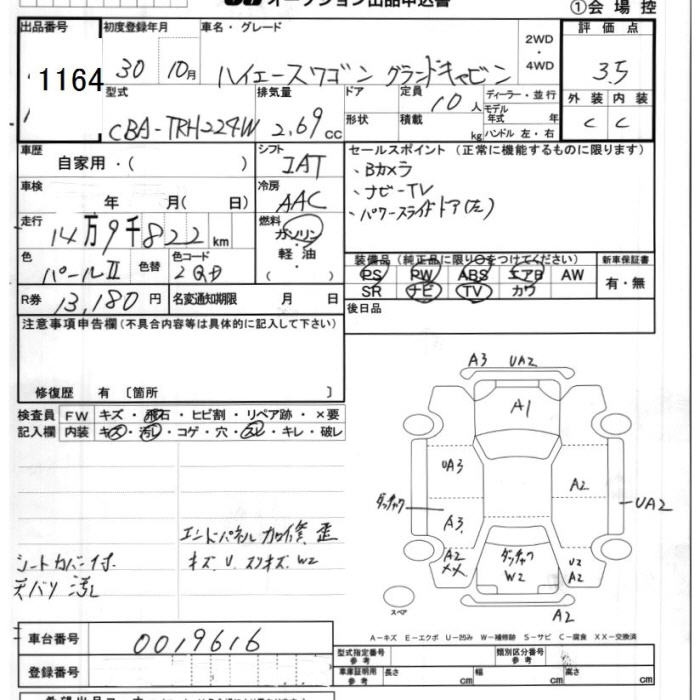 オークション出品申込書
①会場控
出品番号 初度登録年月 車名・グレード 2WD・4WD 評価点
1164 30 10月 ハイエースワゴン グランドキャビン 3.5
型式 排気量 ドア 定員 10人 ディーラー・並行 外装 内装
モデル年式 年
CBA-TRH224W 2.69cc 形状 積載 kg ハンドル 左・右 C C
車歴 シフト セールスポイント(正常に機能するものに限ります)
自家用・( ) IAT ・Bカメラ
車検 冷房 ・ナビ-TV
年 月( 日) AAC ・パワースライドドア(左)
走行 燃料
14万9千822km ガソリン・軽油・( )
色 色替 色コード 装備品(純正品に限り○をつけてください) 新車保証書
パールII PS PW ABS エアB AW 有・無
SR ナビ TV カワ
R券 13,180円 名変通知期限 月 日 後日品
注意事項申告欄(不具合内容等は具体的に記入して下さい)
修復歴 有 〔箇所 〕
検査員 FW キズ・飛石・ヒビ割・リペア跡・×要
記入欄 内装 キズ・汚レ・コゲ・穴・スレ・キレ・破レ
A3 UA2
A1
UA3
A2
ダッチャク
UA2
A3
エンドパネル加修歪
シートカバー付 キズ.U.スリキズ.W2
天バリ汚レ
A2 XX
ダッチャク W2
U2 A2
スペア
A2
A-キズ E-エクボ U-凹み W-補修跡 S-サビ C-腐食 XX-交換済
車台番号 0019616
型式指定番号 参考 類別区分番号 参考
登録番号 車庫証明用 参考 長さ cm 幅 cm 高さ cm
希望出品コーナー